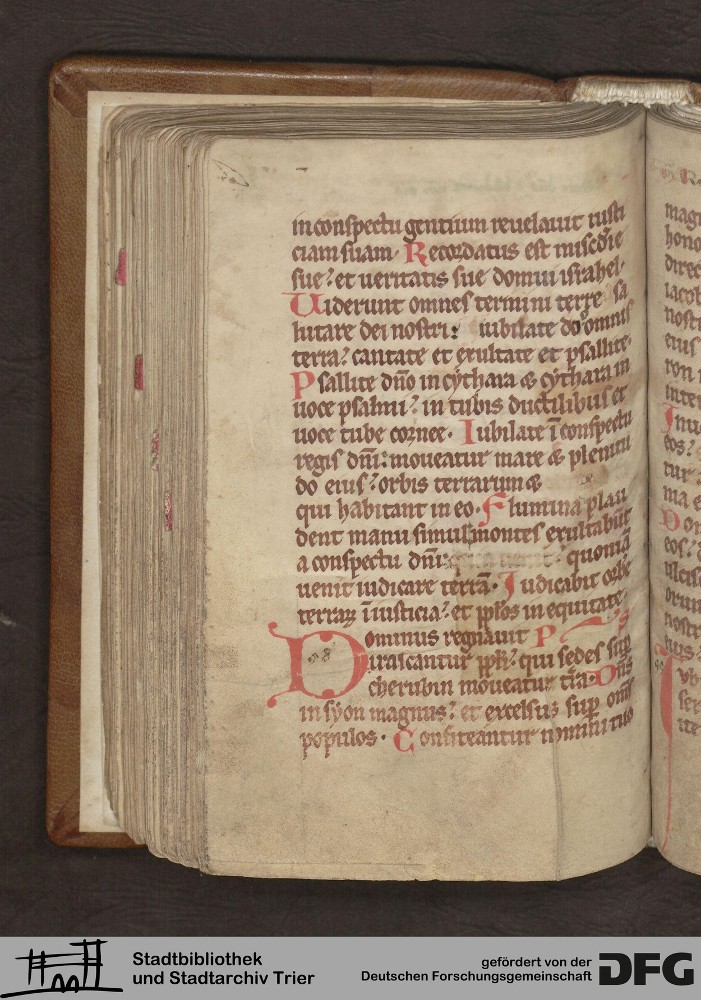 in conspectu gentium reuelauit iusti
ciam suam. Recordatus est miscdie
sue? et ueritatis sue domui israhel.
Uiderunt omnes termini terre sa
lutare dei nostri: iubilate do omnis
terra? cantate et exultate et psallite.
Psallite dno in cythara & cythara in
uoce psalmi? in tubis ductilibus et
uoce tube cornee. Iubilate i conspectu
regis dni: moueatur mare & plenitu
do eius? orbis terrarum &
qui habitant in eo. Flumina plau
dent manu simul montes exultabunt
a conspectu dni: quoniā
uenit iudicare terrā. Iudicabit orbē
terrarꝝ ī iusticia? et pplos in equitate.
Dominus regnauit P S
98
irascantur ppli? qui sedes sup
cherubin moueatur tīa. Dns
in syon magnus? et excelsus sup oms
populos. Confiteantur nomini tuo
magn
hono
direc
iacob
nostr
eius
inter
Inu
eos?
tur
ma e
eos?
ulcis
orum
nostr
Stadtbibliothek
und Stadtarchiv Trier
gefördert von der
Deutschen Forschungsgemeinschaft DFG